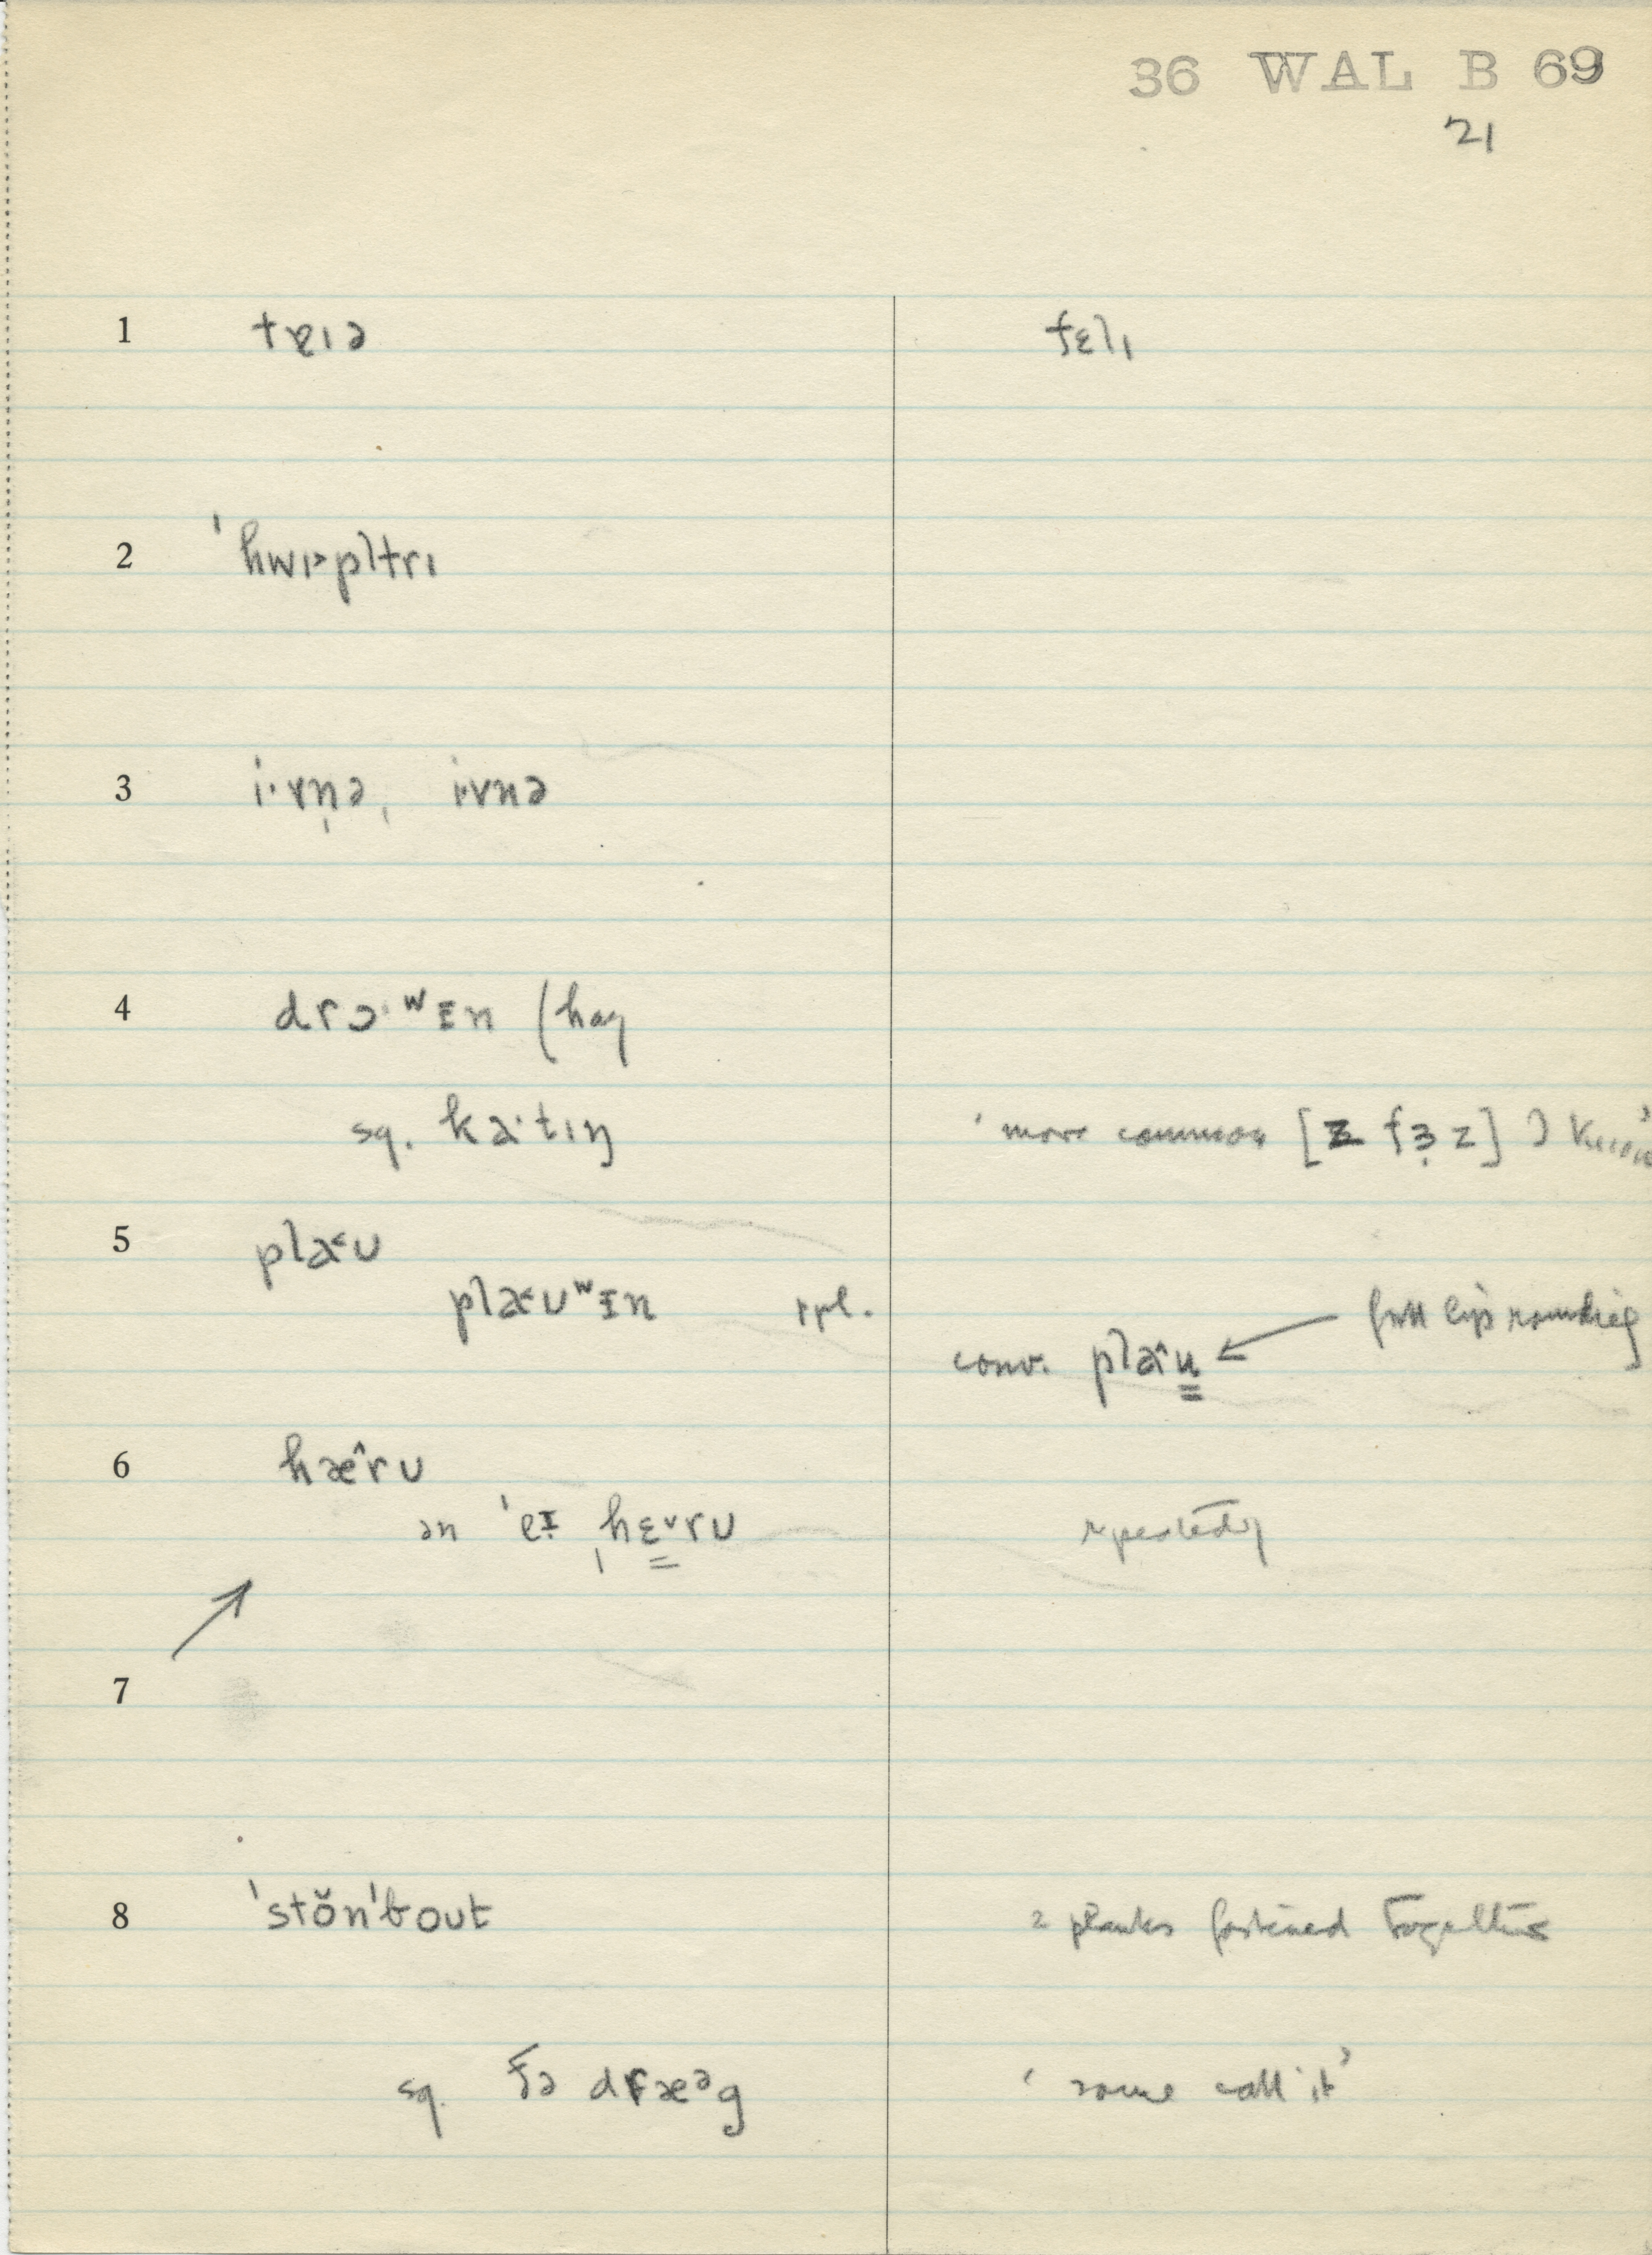 36 WAL B 69
21
1 tɐɪə fɛlɪ
2 ˈhwɪ˃pltrɪ
3 i·vn̩ə, i·vnə
4 drɔ·ʷɪn (hay
sq. ka·tɪŋ ' more common [z fɜ̣z] I know'
5 pla˂ʊ
pla˂ʊʷɪn rpl.
conv. pla̭u̳ ← full lip rounding
6 hæ̂rʊ
ən ˈeɪ ˌhɛ̳ˇrʊ repeatedly
7
8 ˈstŏnˈbout 2 planks fastened together
sq. ðə dræᵊg ' some call it '